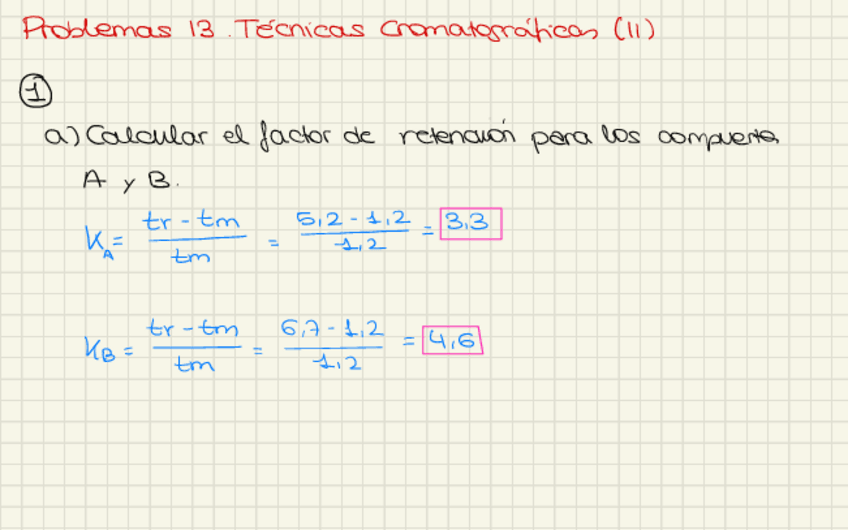 Problemas 13. Técnicas Cromatográficas (II)
1
a) Calcular el factor de retención para los compuestos
A y B.
K_A = (tr - tm) / tm = (5,2 - 1,2) / 1,2 = 3,3
K_B = (tr - tm) / tm = (6,7 - 1,2) / 1,2 = 4,6